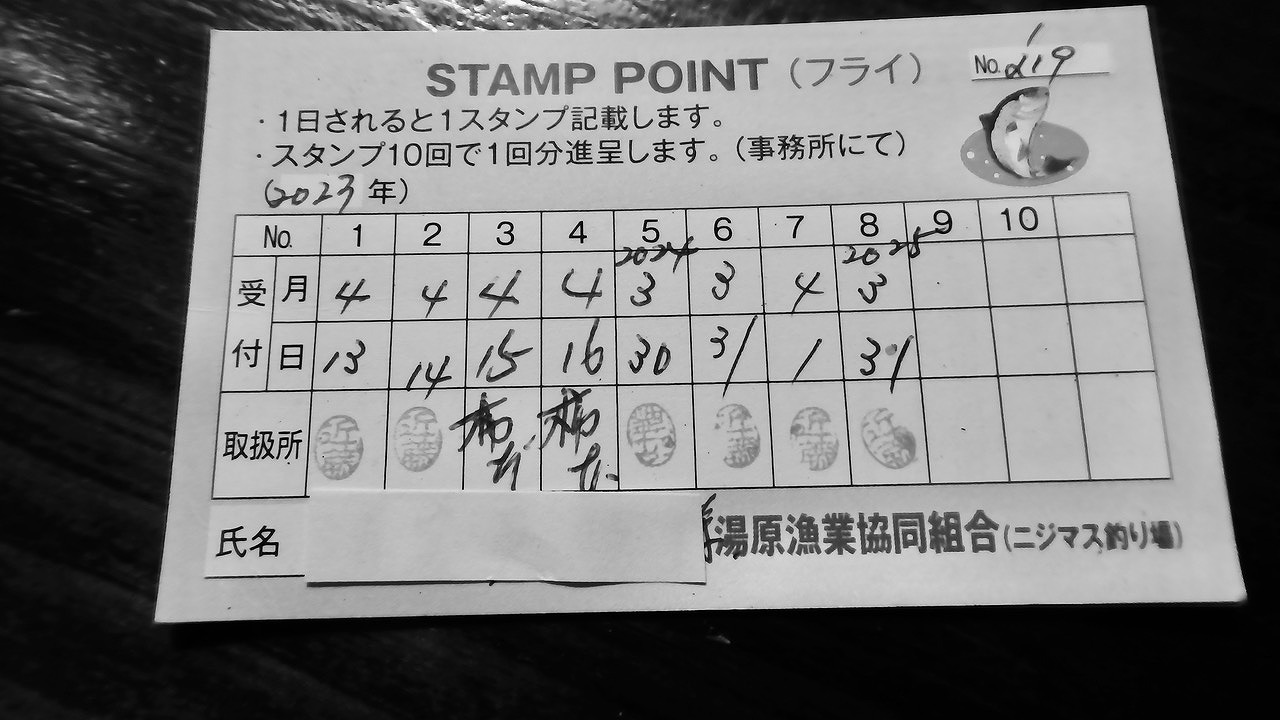 STAMP POINT (フライ)
No.
・1日されると1スタンプ記載します。
・スタンプ10回で1回分進呈します。(事務所にて)
(2023年)
No. 1 2 3 4 5 6 7 8 9 10
2024 2025
受付 月 4 4 4 4 3 3 4 3
日 13 14 15 16 30 31 1 31
取扱所 近藤 近藤 近藤 近藤 近藤
氏名
湯原漁業協同組合(ニジマス釣り場)